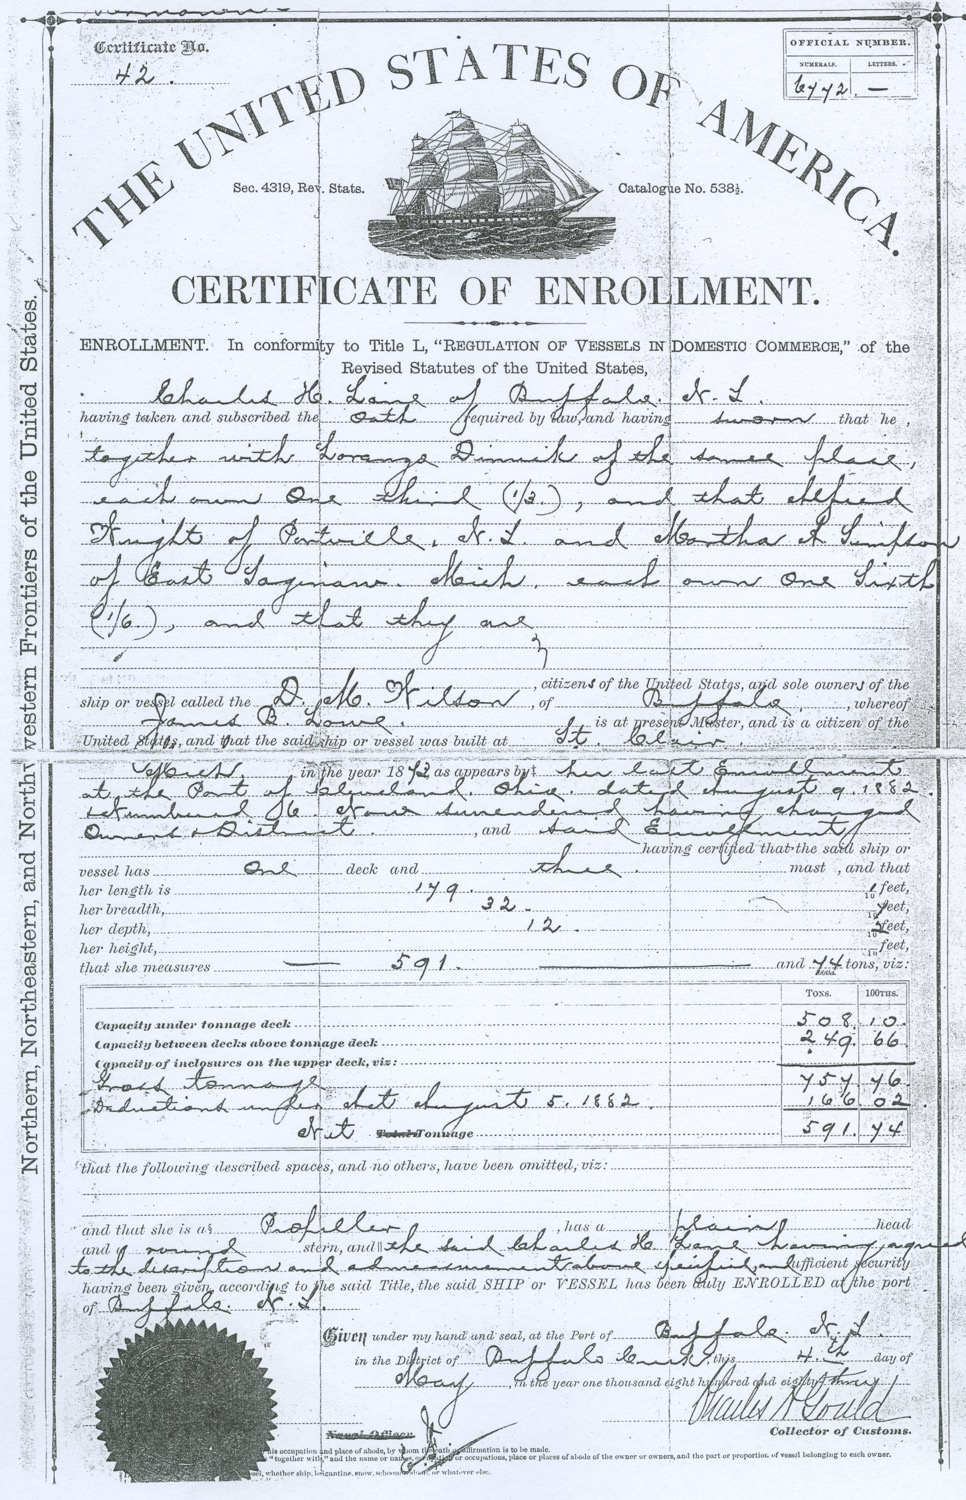 Certificate No.
42.
OFFICIAL NUMBER.
NUMERALS. LETTERS.
6772. —
THE UNITED STATES OF AMERICA.
Sec. 4319, Rev. Stats. Catalogue No. 538½.
CERTIFICATE OF ENROLLMENT.
ENROLLMENT. In conformity to Title L, "REGULATION OF VESSELS IN DOMESTIC COMMERCE," of the
Revised Statutes of the United States,
Charles H. Lane of Buffalo. N. Y.
having taken and subscribed the oath required by law, and having sworn that he,
together with Lorenzo Dimick of the same place,
each own One third (1/3.), and that Alfred
Wright of Portville, N. Y. and Martha A Simpson
of East Saginaw. Mich. each own One Sixth
(1/6.), and that they are
citizens of the United States, and sole owners of the
ship or vessel called the D. M. Wilson, of Buffalo, whereof
James B. Lowe. is at present Master, and is a citizen of the
United States, and that the said ship or vessel was built at St. Clair.
Mich. in the year 1873, as appears by‡ her last Enrollment
at the Port of Cleveland. Ohio. dated August 9. 1882.
Numbered 16 Now surrendered having changed
Owners & District., and said Enrollment
having certified that the said ship or
vessel has One deck and three mast, and that
her length is 179. feet,
her breadth, 32. feet,
her depth, 12. feet,
her height, feet,
that she measures — 591. — and 74 tons, viz:
TONS. 100THS.
Capacity under tonnage deck 508. 10.
Capacity between decks above tonnage deck 249. 66
Capacity of inclosures on the upper deck, viz:
Gross tonnage 757. 76
Deductions under Act August 5. 1882. 166 02.
Net Total Tonnage 591. 74
that the following described spaces, and no others, have been omitted, viz:
and that she is a§ Propeller, has a plain head
and a round stern, and‖ the said Charles H. Lane having agreed
to the discription and admeasurement above specified, and sufficient security
having been given, according to the said Title, the said SHIP or VESSEL has been duly ENROLLED at the port
of Buffalo. N. Y.
Given under my hand and seal, at the Port of Buffalo. N. Y.
in the District of Buffalo Creek, this 4th day of
May, in the year one thousand eight hundred and eighty three
Charles A Gould
Naval Officer. Collector of Customs.
his occupation and place of abode, by whom the oath or affirmation is to be made.
"together with," and the name or names, occupation or occupations, place or places of abode of the owner or owners, and the part or proportion of vessel belonging to each owner.
whether ship, brigantine, snow, schooner, sloop, or whatever else.
Northern, Northeastern, and Northwestern Frontiers of the United States.